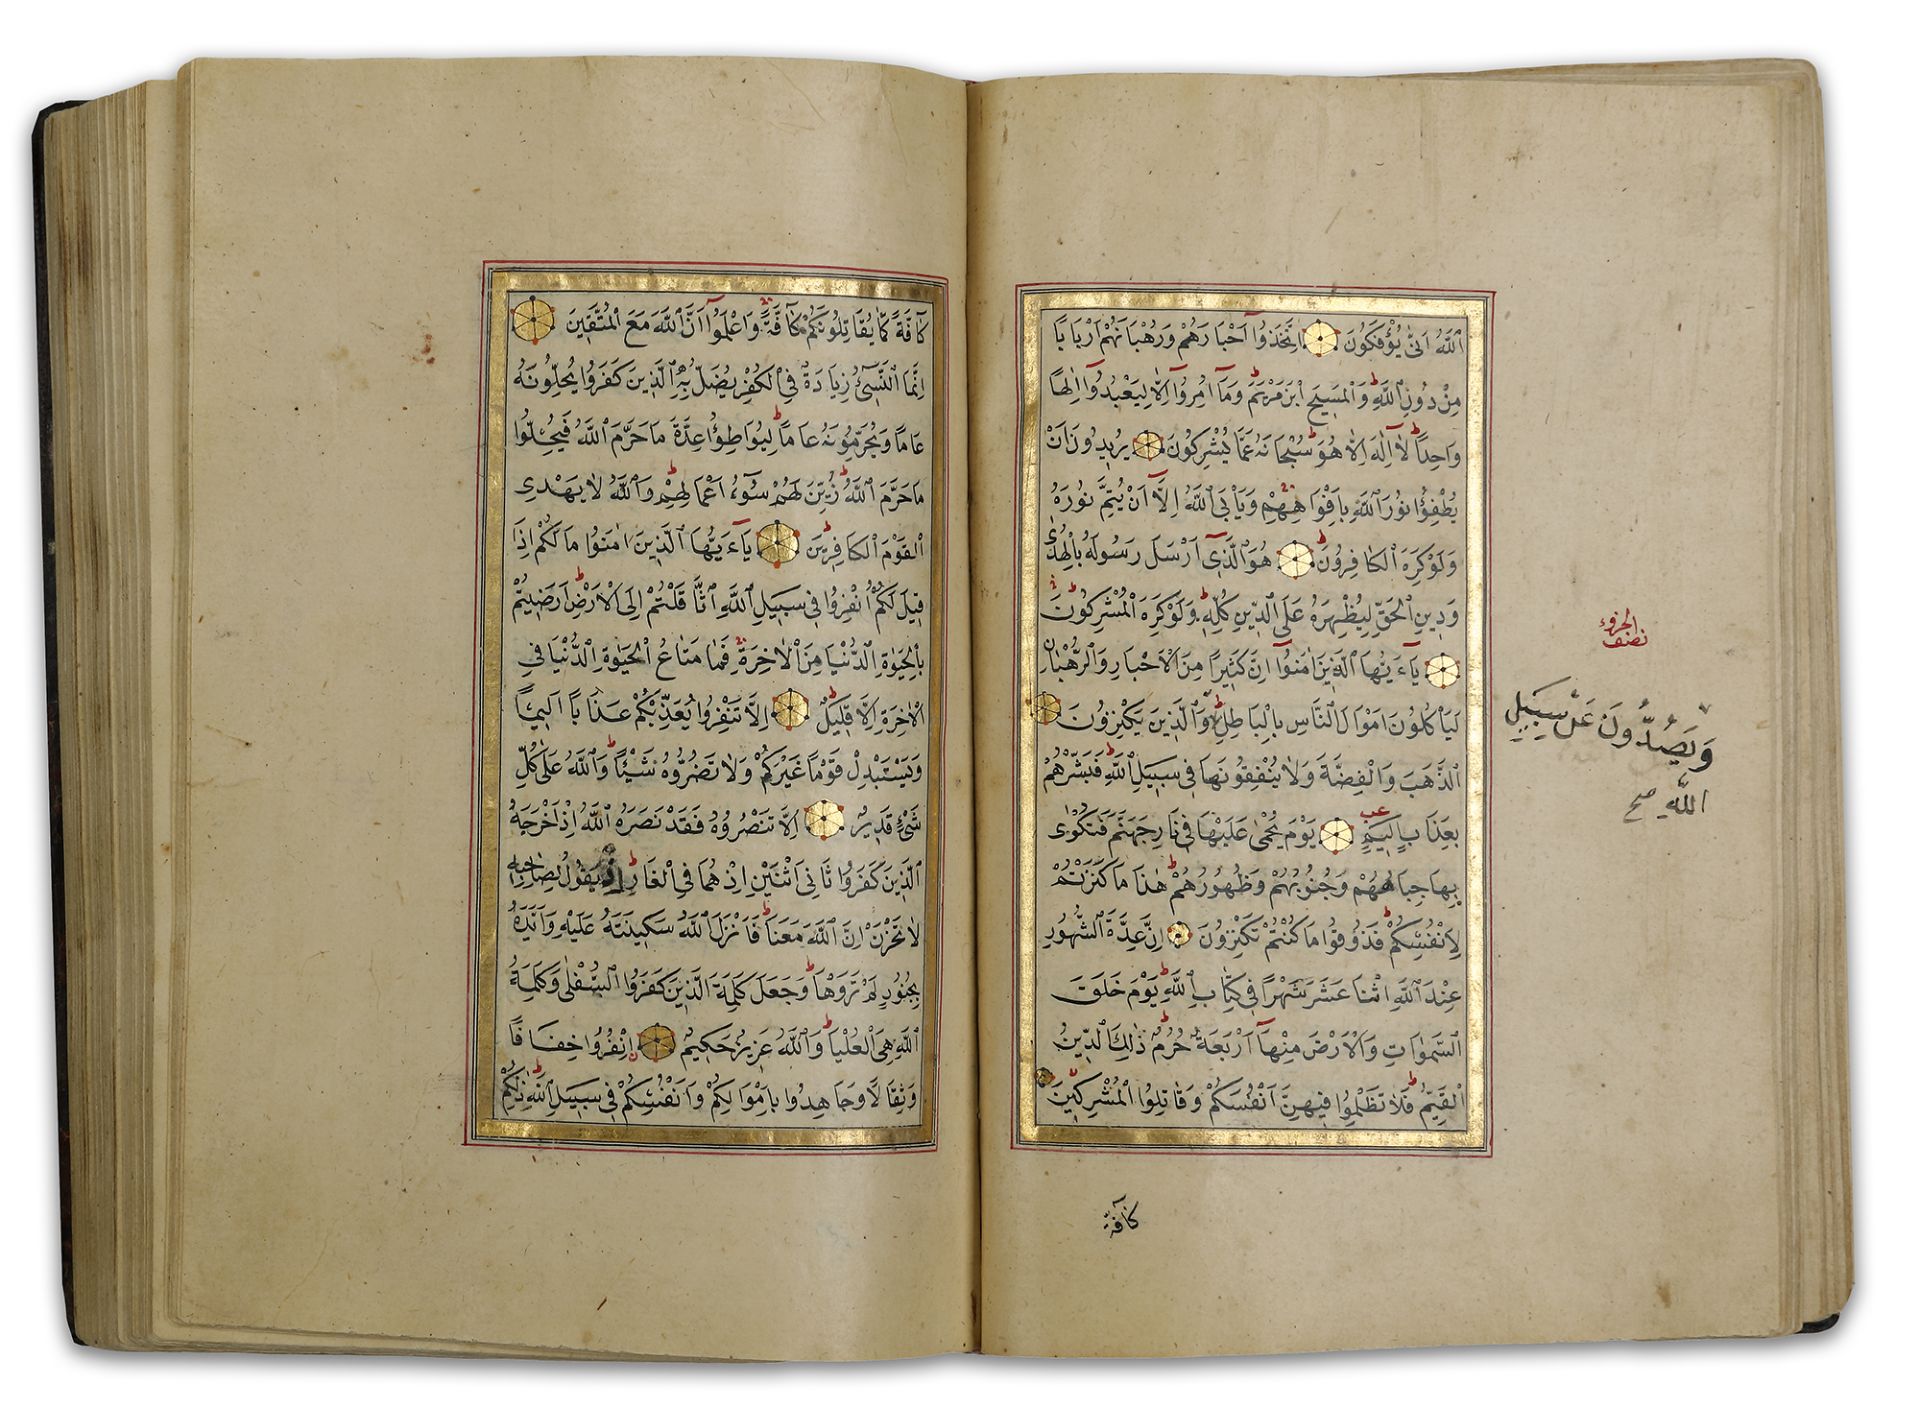 ٱللَّهُ اَنّٰى يُؤْفَكُونَ اِتَّخَذُوٓا اَحْبَارَهُمْ وَرُهْبَانَهُمْ اَرْبَابًا
مِنْ دُونِ ٱللَّهِ وَالْمَسِيحَ ابْنَ مَرْيَمَ وَمَآ اُمِرُوٓا اِلَّا لِيَعْبُدُوٓا اِلٰهًا
وَاحِدًا لَآ اِلٰهَ اِلَّا هُوَ سُبْحَانَهُ عَمَّا يُشْرِكُونَ يُرِيدُونَ اَنْ
يُطْفِؤُا نُورَ ٱللَّهِ بِاَفْوَاهِهِمْ وَيَاْبَى ٱللَّهُ اِلَّآ اَنْ يُتِمَّ نُورَهُ
وَلَوْ كَرِهَ الْكَافِرُونَ هُوَ الَّذِىٓ اَرْسَلَ رَسُولَهُ بِالْهُدٰى
وَدِينِ الْحَقِّ لِيُظْهِرَهُ عَلَى الدِّينِ كُلِّهِ وَلَوْ كَرِهَ الْمُشْرِكُونَ
يَآءَيُّهَا الَّذِينَ اٰمَنُوٓا اِنَّ كَثِيرًا مِنَ الْاَحْبَارِ وَالرُّهْبَانِ
لَيَاْكُلُونَ اَمْوَالَ النَّاسِ بِالْبَاطِلِ وَالَّذِينَ يَكْنِزُونَ
الذَّهَبَ وَالْفِضَّةَ وَلَا يُنْفِقُونَهَا فِى سَبِيلِ ٱللَّهِ فَبَشِّرْهُمْ
بِعَذَابٍ اَلِيمٍ يَوْمَ يُحْمٰى عَلَيْهَا فِى نَارِ جَهَنَّمَ فَتُكْوٰى
بِهَا جِبَاهُهُمْ وَجُنُوبُهُمْ وَظُهُورُهُمْ هٰذَا مَا كَنَزْتُمْ
لِاَنْفُسِكُمْ فَذُوقُوا مَا كُنْتُمْ تَكْنِزُونَ اِنَّ عِدَّةَ الشُّهُورِ
عِنْدَ ٱللَّهِ اثْنَا عَشَرَ شَهْرًا فِى كِتَابِ ٱللَّهِ يَوْمَ خَلَقَ
السَّمٰوَاتِ وَالْاَرْضَ مِنْهَآ اَرْبَعَةٌ حُرُمٌ ذٰلِكَ الدِّينُ
الْقَيِّمُ فَلَا تَظْلِمُوا فِيهِنَّ اَنْفُسَكُمْ وَقَاتِلُوا الْمُشْرِكِينَ
كَآفَّةً
نصف
الجزوء
وَيَصُدُّونَ عَنْ سَبِيلِ
اللّٰهِ صح
كَآفَّةً كَمَا يُقَاتِلُونَكُمْ كَآفَّةً وَاعْلَمُوٓا اَنَّ ٱللَّهَ مَعَ الْمُتَّقِينَ
اِنَّمَا النَّسِىٓءُ زِيَادَةٌ فِى الْكُفْرِ يُضَلُّ بِهِ الَّذِينَ كَفَرُوا يُحِلُّونَهُ
عَامًا وَيُحَرِّمُونَهُ عَامًا لِيُوَاطِؤُا عِدَّةَ مَا حَرَّمَ ٱللَّهُ فَيُحِلُّوا
مَا حَرَّمَ ٱللَّهُ زُيِّنَ لَهُمْ سُوٓءُ اَعْمَالِهِمْ وَٱللَّهُ لَا يَهْدِى
الْقَوْمَ الْكَافِرِينَ يَآءَيُّهَا الَّذِينَ اٰمَنُوا مَا لَكُمْ اِذَا
قِيلَ لَكُمُ انْفِرُوا فِى سَبِيلِ ٱللَّهِ اثَّاقَلْتُمْ اِلَى الْاَرْضِ اَرَضِيتُمْ
بِالْحَيٰوةِ الدُّنْيَا مِنَ الْاٰخِرَةِ فَمَا مَتَاعُ الْحَيٰوةِ الدُّنْيَا فِى
الْاٰخِرَةِ اِلَّا قَلِيلٌ اِلَّا تَنْفِرُوا يُعَذِّبْكُمْ عَذَابًا اَلِيمًا
وَيَسْتَبْدِلْ قَوْمًا غَيْرَكُمْ وَلَا تَضُرُّوهُ شَيْئًا وَٱللَّهُ عَلٰى كُلِّ
شَىْءٍ قَدِيرٌ اِلَّا تَنْصُرُوهُ فَقَدْ نَصَرَهُ ٱللَّهُ اِذْ اَخْرَجَهُ
الَّذِينَ كَفَرُوا ثَانِىَ اثْنَيْنِ اِذْ هُمَا فِى الْغَارِ اِذْ يَقُولُ لِصَاحِبِهِ
لَا تَحْزَنْ اِنَّ ٱللَّهَ مَعَنَا فَاَنْزَلَ ٱللَّهُ سَكِينَتَهُ عَلَيْهِ وَاَيَّدَهُ
بِجُنُودٍ لَمْ تَرَوْهَا وَجَعَلَ كَلِمَةَ الَّذِينَ كَفَرُوا السُّفْلٰى وَكَلِمَةُ
ٱللَّهِ هِىَ الْعُلْيَا وَٱللَّهُ عَزِيزٌ حَكِيمٌ اِنْفِرُوا خِفَافًا
وَثِقَالًا وَجَاهِدُوا بِاَمْوَالِكُمْ وَاَنْفُسِكُمْ فِى سَبِيلِ ٱللَّهِ ذٰلِكُمْ